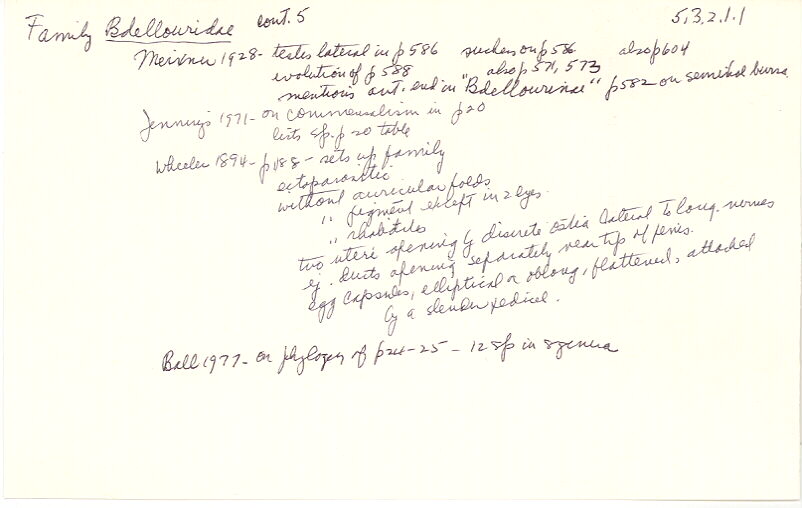 Family Bdellouridae cont. 5 5,3,2.1.1
Meixner 1928 - testes lateral in p586 suckers on p586 also p604
evolution of p588 also p571, 573
mentions ant. end in "Bdellourinae" p582 on seminal bursa
Jennings 1971 - on commensalism in p20
lists sp. p20 table
Wheeler 1894 - p188 - sets up family
ectoparasitic
without auricular folds
" pigment except in 2 eyes
" rhabdites
two uteri opening by discrete ostia lateral to long. nerves
ej. ducts opening separately near tip of penis.
egg capsules, elliptical or oblong, flattened, attached
by a slender pedicel.
Ball 1977 - on phylogeny of p24-25 - 12 sp in 8 genera